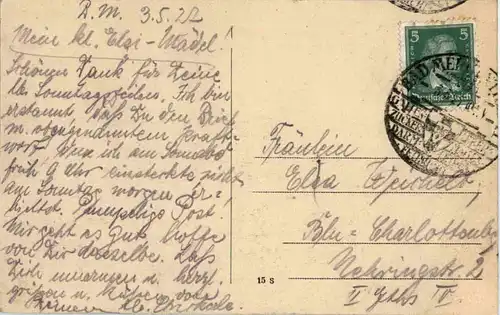 B. M. 3.5.27
Mein kl. Elsi-Mädel!
Schönen Dank für Deine
lb. Sonntagszeilen. Ich bin
erstaunt, daß Du den Brief
m. obengenanntem
wo ich am Sonnabd
früh 9 Uhr einsteckte nicht
am Sonntag morgen er-
hieltst. Pumpelige Post!
Mir geht es gut, hoffe
von Dir dasselbe. Laß
Dich umarmen u. herzl.
grüßen u. küssen von
Deinem
5
Deutsches Reich
BAD ME
Fräulein
Elsa
Bln-Charlottenbg
Nehringstr. 2
II Gths IV.
15 S